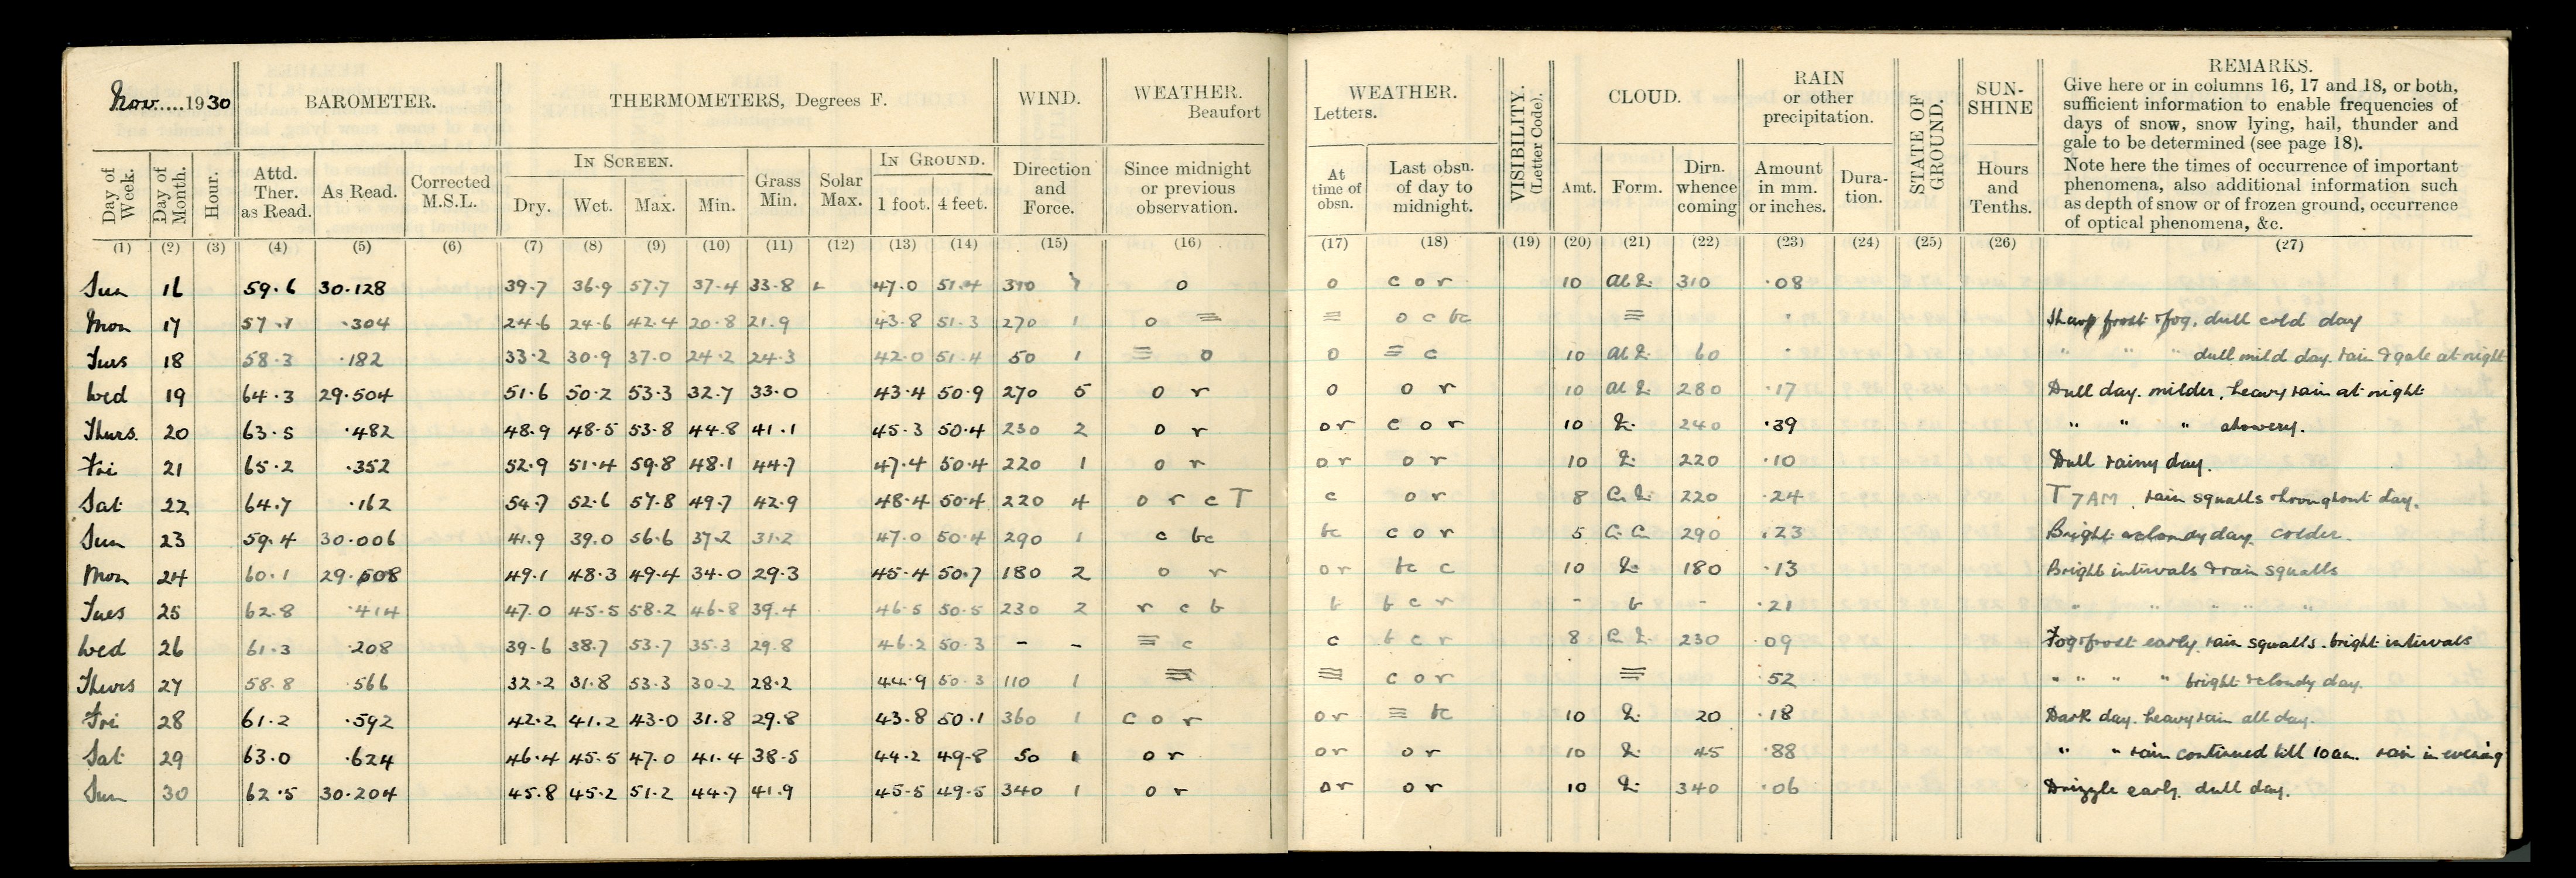 Nov.....1930 BAROMETER. THERMOMETERS, Degrees F. WIND. WEATHER. Beaufort WEATHER. Letters. VISIBILITY. (Letter Code). CLOUD. RAIN or other precipitation. STATE OF GROUND. SUN-SHINE REMARKS.
Give here or in columns 16, 17 and 18, or both,
sufficient information to enable frequencies of
days of snow, snow lying, hail, thunder and
gale to be determined (see page 18).
Note here the times of occurrence of important
phenomena, also additional information such
as depth of snow or of frozen ground, occurrence
of optical phenomena, &c.
IN SCREEN. IN GROUND.
Day of Week. Day of Month. Hour. Attd. Ther. as Read. As Read. Corrected M.S.L. Dry. Wet. Max. Min. Grass Min. Solar Max. 1 foot. 4 feet. Direction and Force. Since midnight or previous observation. At time of obsn. Last obsn. of day to midnight. Amt. Form. Dirn. whence coming Amount in mm. or inches. Dura-tion. Hours and Tenths.
(1) (2) (3) (4) (5) (6) (7) (8) (9) (10) (11) (12) (13) (14) (15) (16) (17) (18) (19) (20) (21) (22) (23) (24) (25) (26) (27)
Sun 16 59.6 30.128 39.7 36.9 57.7 37.4 33.8 47.0 51.4 310 1 o o c o r 10 310 .08
Mon 17 57.1 .304 24.6 24.6 42.4 20.8 21.9 43.8 51.3 270 1 o ≡ ≡ o c bc ≡ . Sharp frost & fog, dull cold day
Tues 18 58.3 .182 33.2 30.9 37.0 24.2 24.3 42.0 51.4 50 1 ≡ o o ≡ c 10 60 . " " " dull mild day. rain & gale at night
Wed 19 64.3 29.504 51.6 50.2 53.3 32.7 33.0 43.4 50.9 270 5 o r o o r 10 280 .17 Dull day. milder, heavy rain at night
Thurs. 20 63.5 .482 48.9 48.5 53.8 44.8 41.1 45.3 50.4 230 2 o r o r c o r 10 240 .39 " " " showery.
Fri 21 65.2 .352 52.9 51.4 59.8 48.1 44.7 47.4 50.4 220 1 o r o r o r 10 220 .10 Dull rainy day.
Sat 22 64.7 .162 54.7 52.6 57.8 49.7 42.9 48.4 50.4 220 4 o r c T c o r 8 220 .24 T 7AM. rain squalls throughout day.
Sun 23 59.4 30.006 41.9 39.0 56.6 37.2 31.2 47.0 50.4 290 1 c bc bc c o r 5 290 .23 Bright & cloudy day. colder.
Mon 24 60.1 29.508 49.1 48.3 49.4 34.0 29.3 45.4 50.7 180 2 o r o r bc c 10 180 .13 Bright intervals & rain squalls
Tues 25 62.8 .414 47.0 45.5 58.2 46.8 39.4 46.5 50.5 230 2 r c b b b c r - b - .21 " " " " "
Wed 26 61.3 .208 39.6 38.7 53.7 35.3 29.8 46.2 50.3 - - ≡ c c b c r 8 230 .09 Fog & frost early. rain squalls. bright intervals
Thurs 27 58.8 .566 32.2 31.8 53.3 30.2 28.2 44.9 50.3 110 1 ≡ ≡ c o r ≡ .52 " " " " bright & cloudy day.
Fri 28 61.2 .592 42.2 41.2 43.0 31.8 29.8 43.8 50.1 360 1 c o r o r ≡ bc 10 20 .18 Dark day. heavy rain all day.
Sat 29 63.0 .624 46.4 45.5 47.0 41.4 38.5 44.2 49.8 50 1 o r o r o r 10 45 .88 " " rain continued till 10am. rain in evening
Sun 30 62.5 30.204 45.8 45.2 51.2 44.7 41.9 45.5 49.5 340 1 o r o r o r 10 340 .06 Drizzle early. dull day.